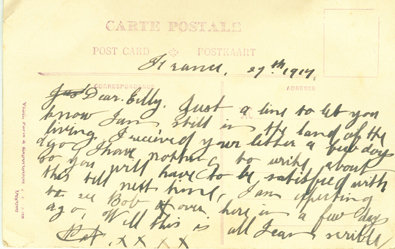 CARTE POSTALE
POST CARD POSTKAART
France, 27th 1917.
CORRESPONDENCE ADDRESS
Dear Elly. Just a line to let you
know I am still in the land of the
living, I received your letter a few days
ago, I have nothing to write about
so you will have to be satisfied with
this till next time, I am expecting
to see Bob over here in a few days
ago, Well this is all I can write
XXXX